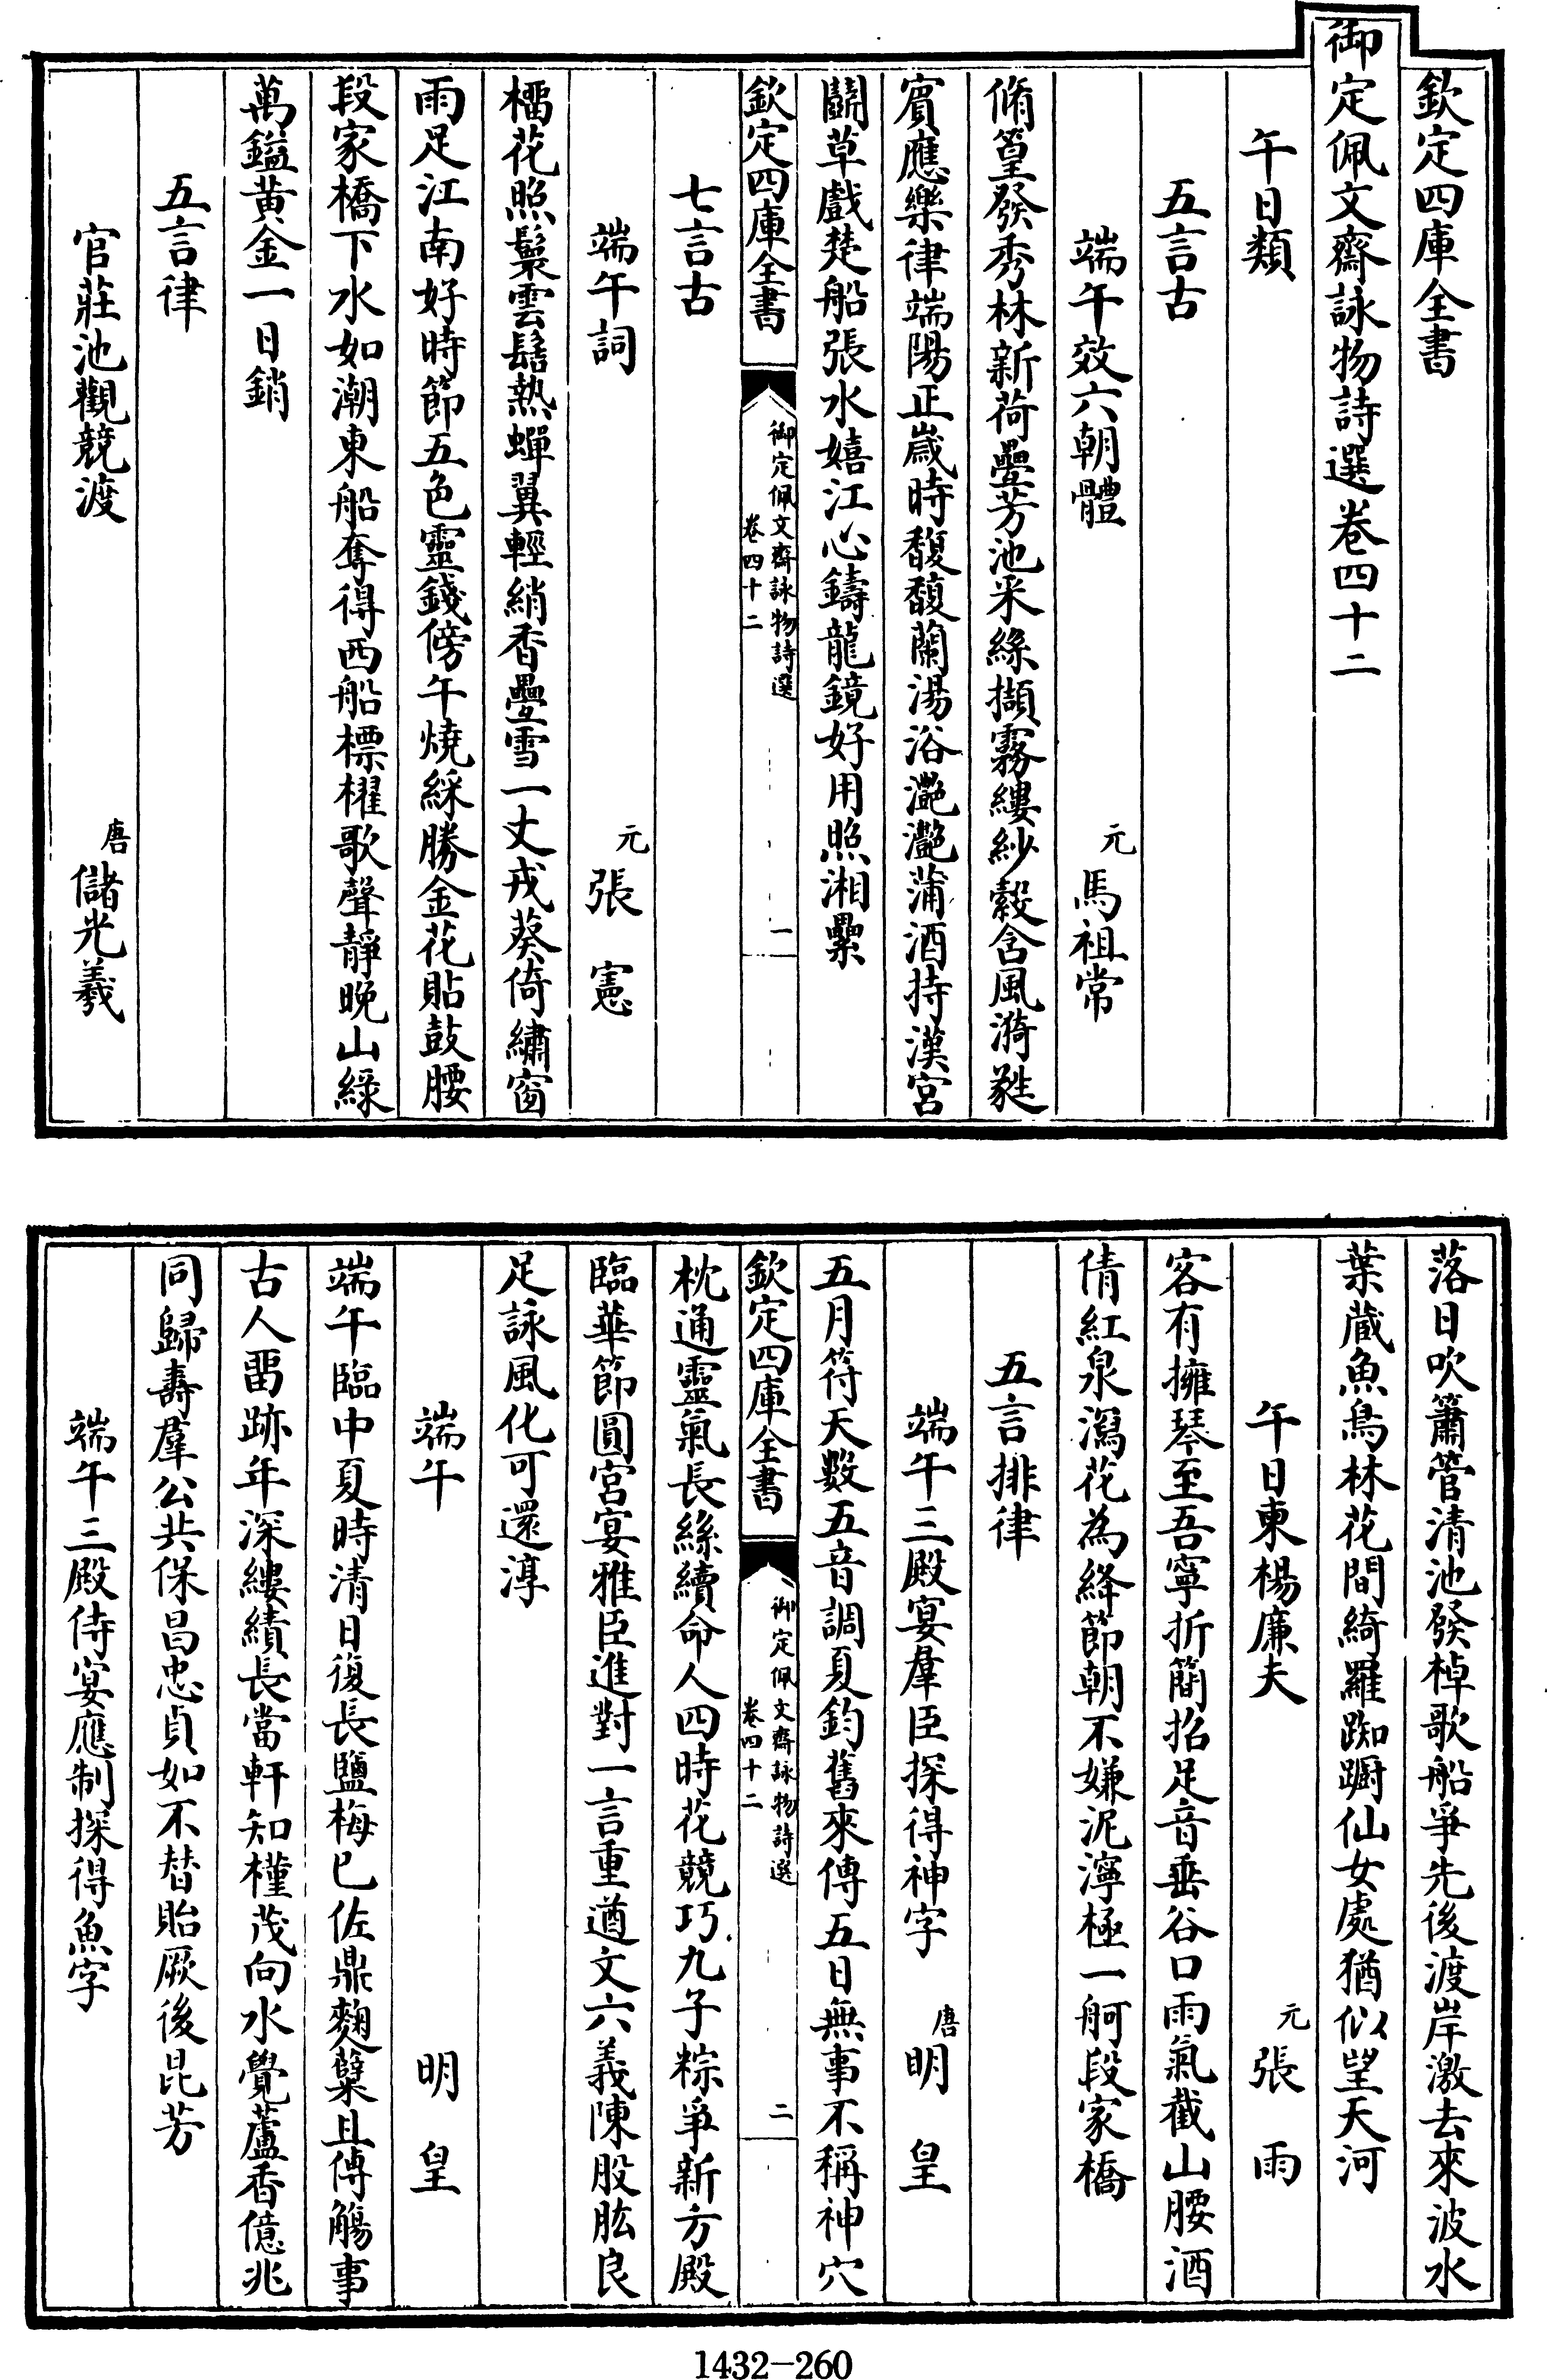 欽定四庫全書
御定佩文齋詠物詩選卷四十二
午日類
五言古
端午效六朝體 元 馬祖常
脩篁發秀林新荷疊芳池采絲擷霧縷紗縠含風漪甤
賓應樂律端陽正歲時馥馥蘭湯浴灔灔蒲酒持漢宮
鬬草戲楚船張水嬉江心鑄龍鏡好用照湘纍
欽定四庫全書 御定佩文齋詠物詩選 卷四十二 一
七言古
端午詞 元 張憲
榴花照鬟雲髻熱蟬翼輕綃香疊雪一丈戎葵倚繡窗
雨足江南好時節五色靈錢傍午燒綵勝金花貼鼓腰
段家橋下水如潮東船奪得西船標櫂歌聲靜晚山綠
萬鎰黃金一日銷
五言律
官莊池觀競渡 唐 儲光羲
落日吹簫管清池發棹歌船爭先後渡岸激去來波水
葉藏魚鳥林花間綺羅踟躕仙女處猶似望天河
午日東楊廉夫 元 張雨
客有擁琴至吾寧折簡招足音垂谷口雨氣截山腰酒
倩紅泉瀉花為絳節朝不嫌泥濘極一舸段家橋
五言排律
端午三殿宴羣臣探得神字 唐 明皇
五月符天數五音調夏鈞舊來傳五日無事不稱神穴
欽定四庫全書 御定佩文齋詠物詩選 卷四十二 二
枕通靈氣長絲續命人四時花競巧九子粽爭新方殿
臨華節圓宮宴雅臣進對一言重遒文六義陳股肱良
足詠風化可還淳
端午 明皇
端午臨中夏時清日復長鹽梅已佐鼎麴糵且傳觴事
古人畱跡年深縷績長當軒知槿茂向水覺蘆香億兆
同歸壽羣公共保昌忠貞如不替貽厥後昆芳
端午三殿侍宴應制探得魚字
1432-260